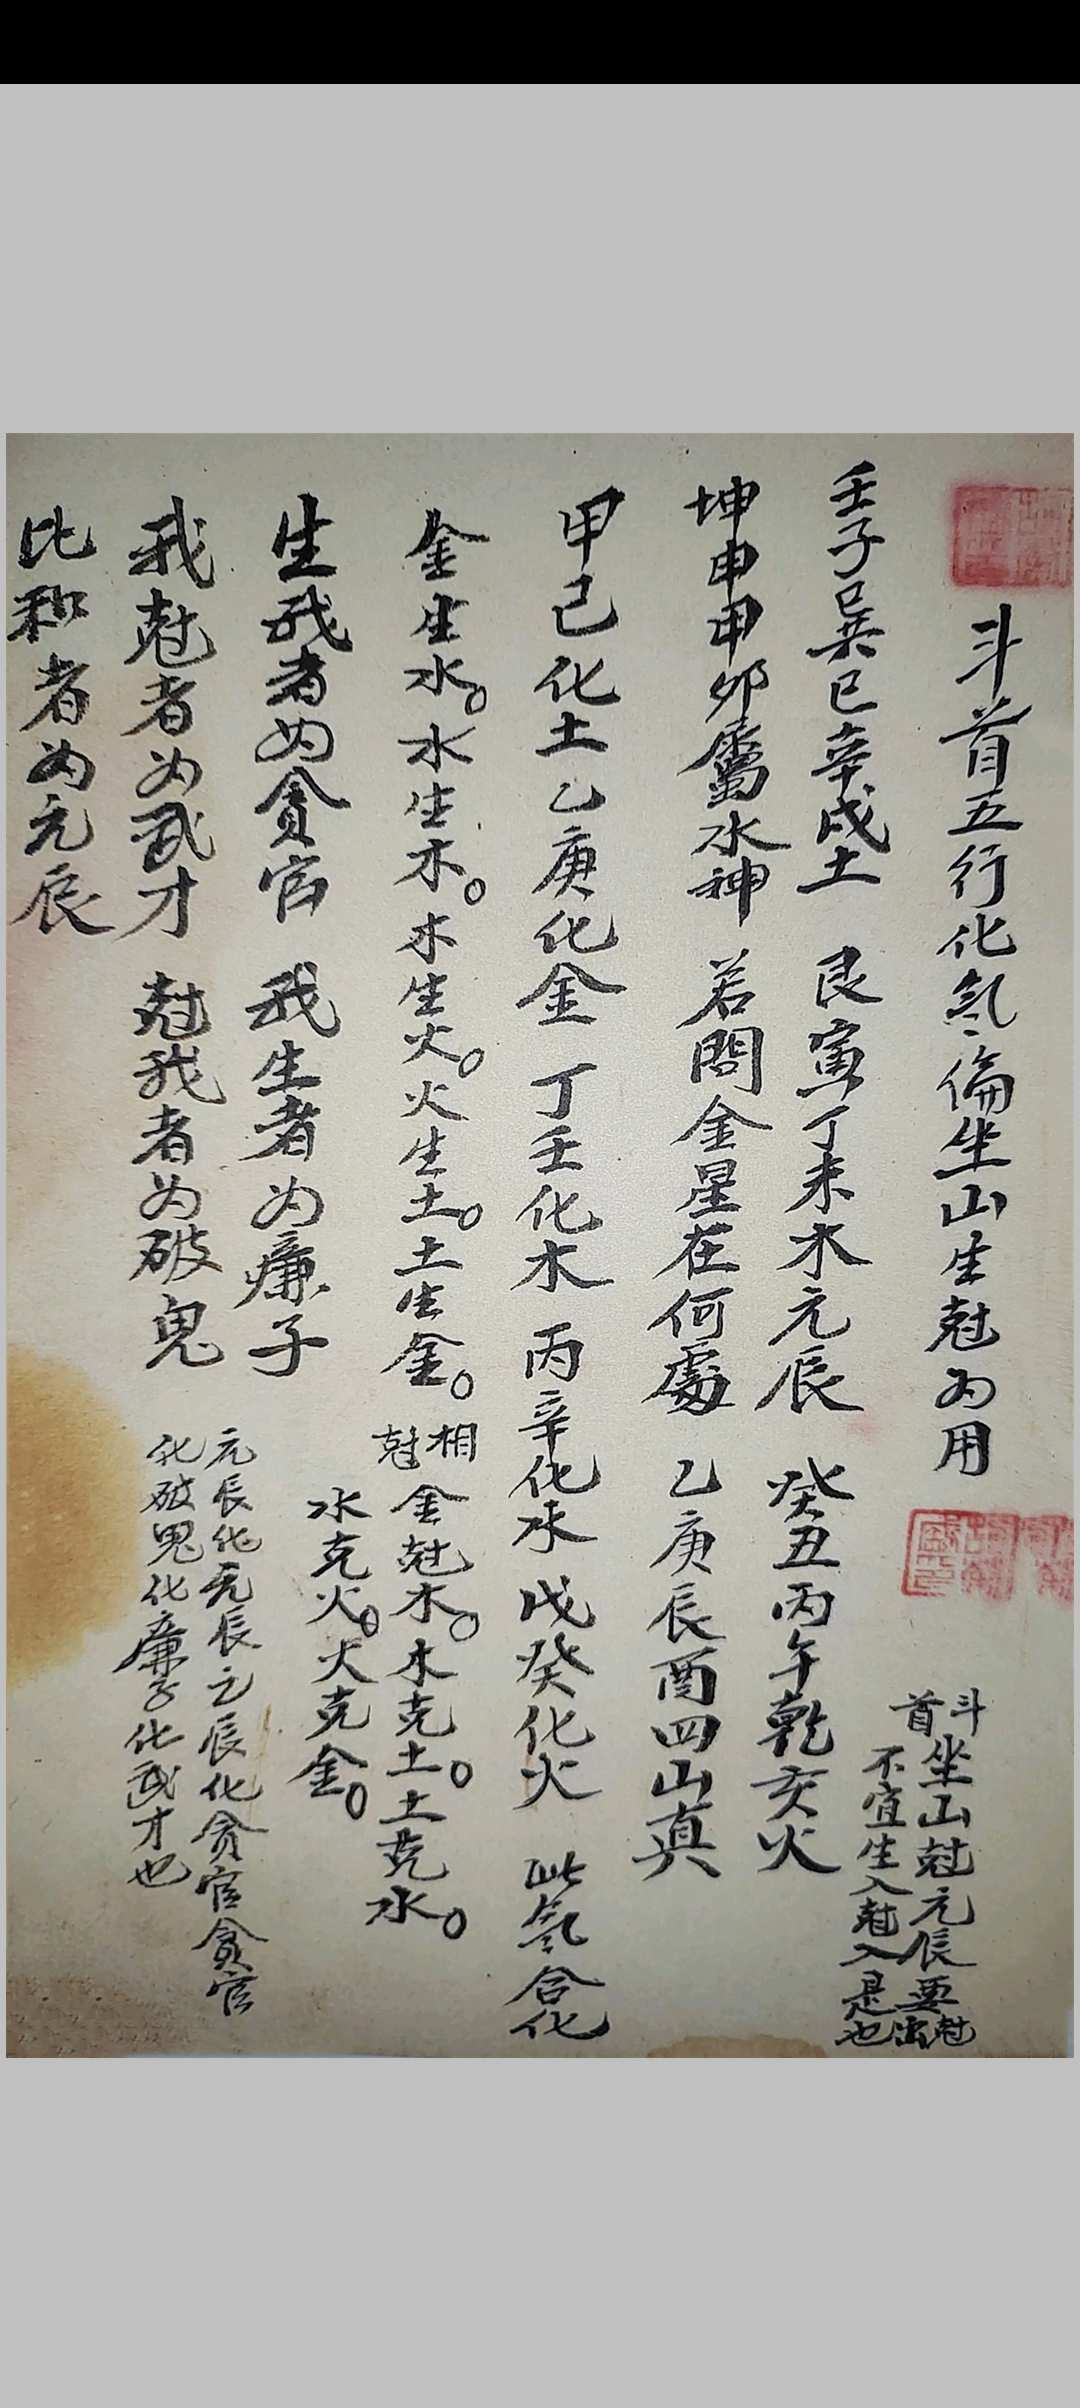 斗首五行化氣倫坐山生尅为用
斗首坐山尅元辰要尅出
不宜生入尅入是也
壬子巽巳辛戌土 艮寅丁未木元辰 癸丑丙午乾亥火
坤申甲卯屬水神 若問金星在何處 乙庚辰酉四山真
甲己化土乙庚化金 丁壬化木 丙辛化水 戊癸化火 此氣合化
金生水。水生木。木生火。火生土。土生金。
相尅 金尅木。木克土。土克水。
水克火。火克金。
生我者为貪官 我生者为廉子
我尅者为武才 尅我者为破鬼
元辰化元辰元辰化貪官貪官
化破鬼化廉子化武才也
比和者为元辰